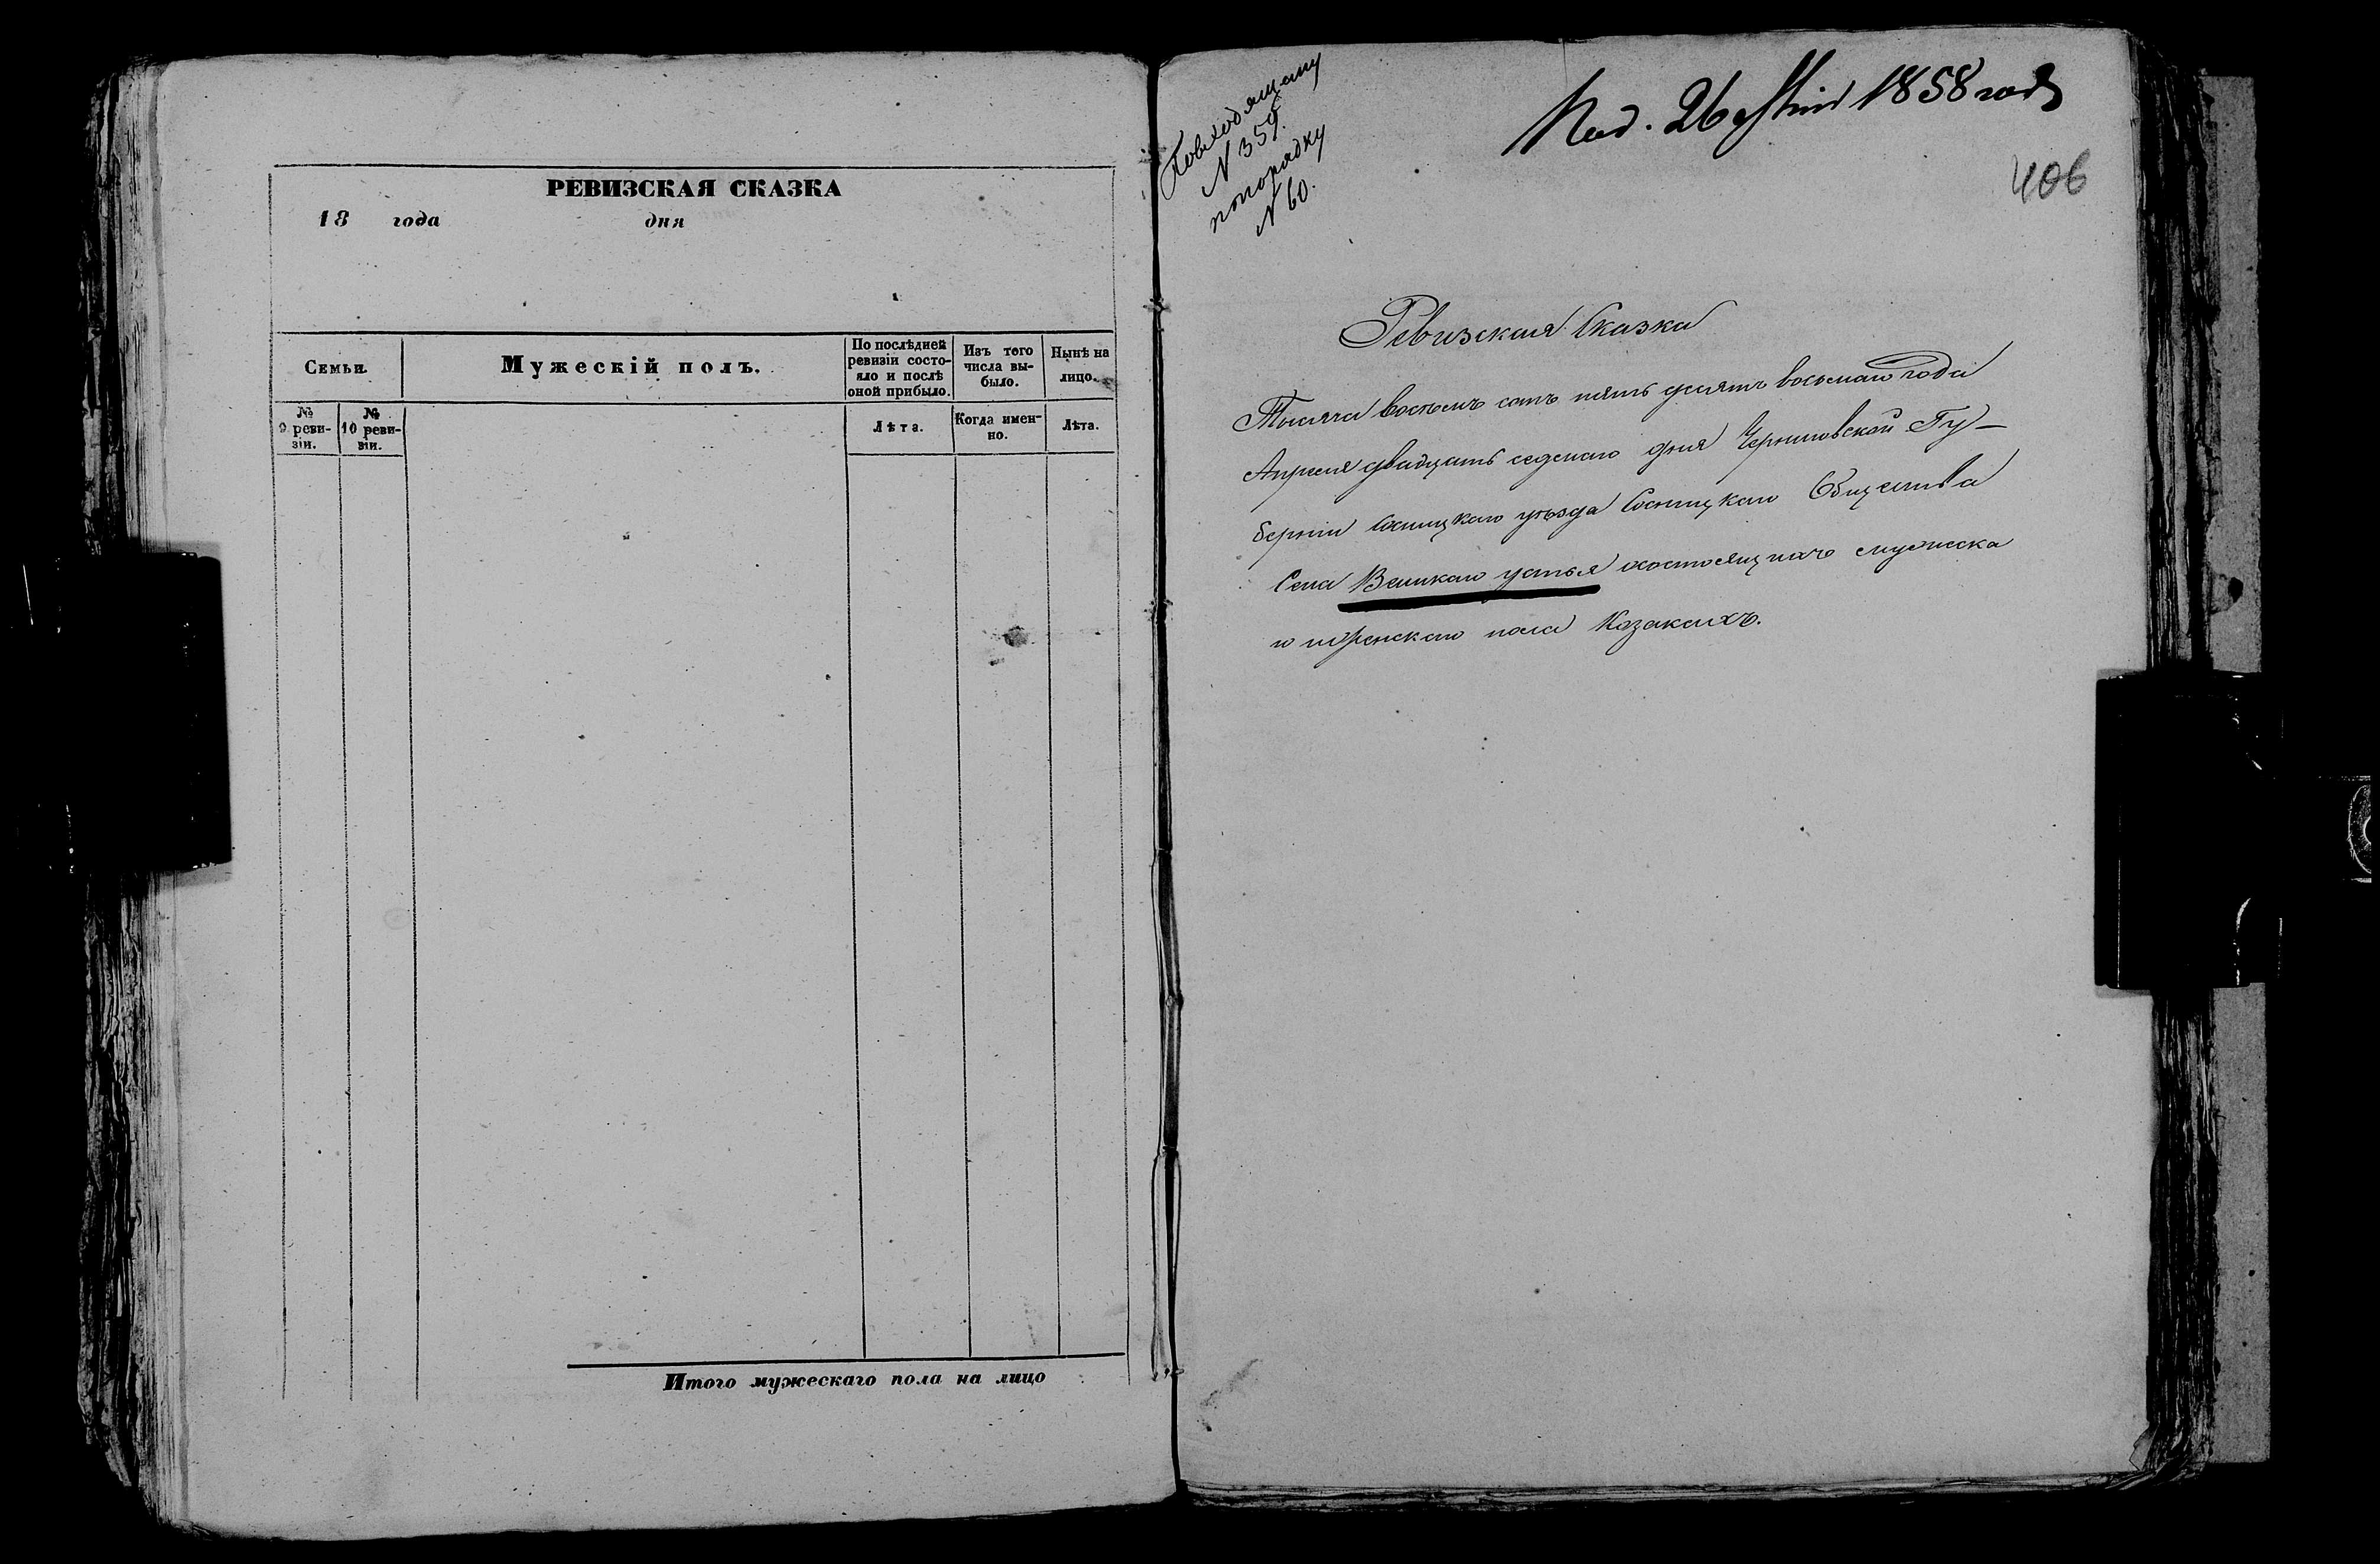 РЕВИЗСКАЯ СКАЗКА
18 года дня
Семьи.
Мужескій полъ.
По послѣдней ревизіи состояло и послѣ оной прибыло.
Изъ того числа выбыло.
Нынѣ на лицо.
№ 9 ревизіи.
№ 10 ревизіи.
Лѣта.
Когда именно.
Лѣта.
Итого мужескаго пола на лицо
Повходящему
N 359.
по порядку
N 60.
Под. 26 1858 года
406
Ревизская Сказка
Тысяча восемь сотъ пять десятъ восьмаго года
Апреля двадцать седмаго дня Черниговской Гу-
берніи Сосницкаго уѣзда Сосницкаго Общества
Села Великаго устья о состоящихъ мужеска
и женскаго пола Козакахъ.